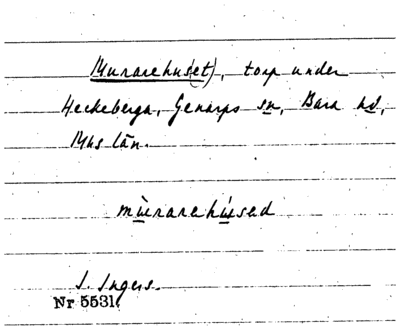 Murarehus(et), torp under
Heckeberga, Genarps sn, Bara hd,
Mhs län.
mùrarehússed
I. Ingers.
Nr 5531